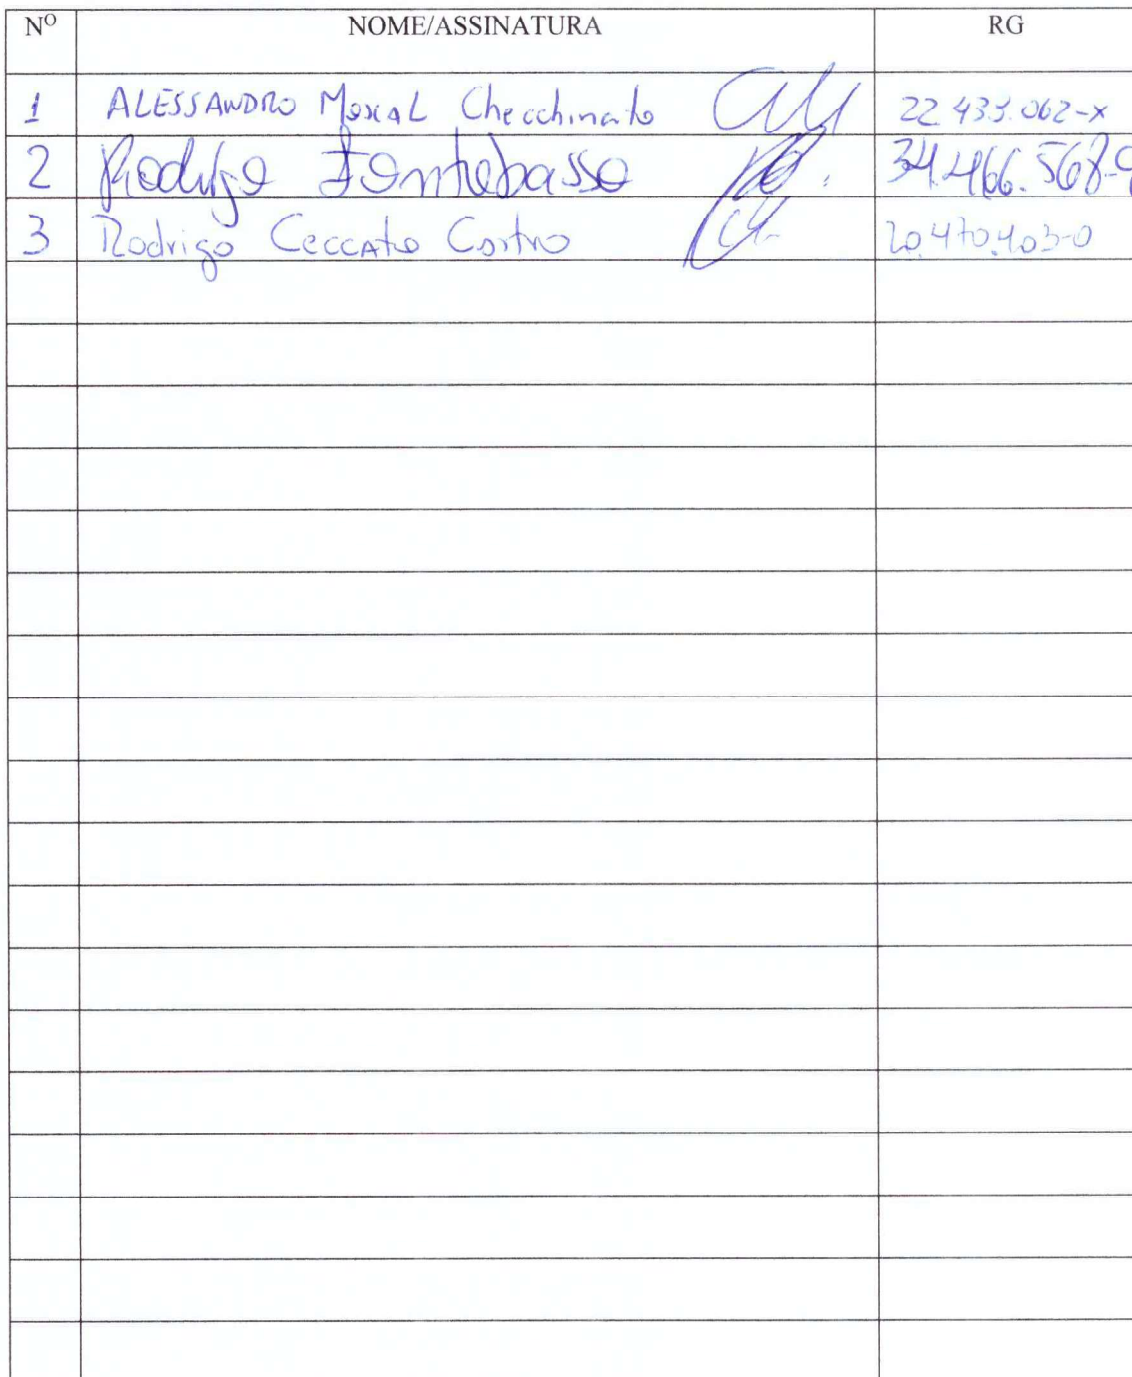 Nº NOME/ASSINATURA RG
1 ALESSANDRO Checchinato 22.433.062-X
2 Rodrigo Fontebasso 34.466.568-9
3 Rodrigo Ceccato Castro 20.470.403-0